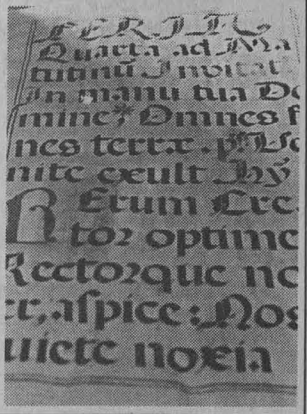 FERIA
Quarta ad Ma
tutinū Invitat
In manu tua Do
mine, Omnes f
nes terræ. ps Ve
nite exult Hȳ
Rerum Crea
tor optime
Rectorque no
er, aspice: Nos
uiete noxia